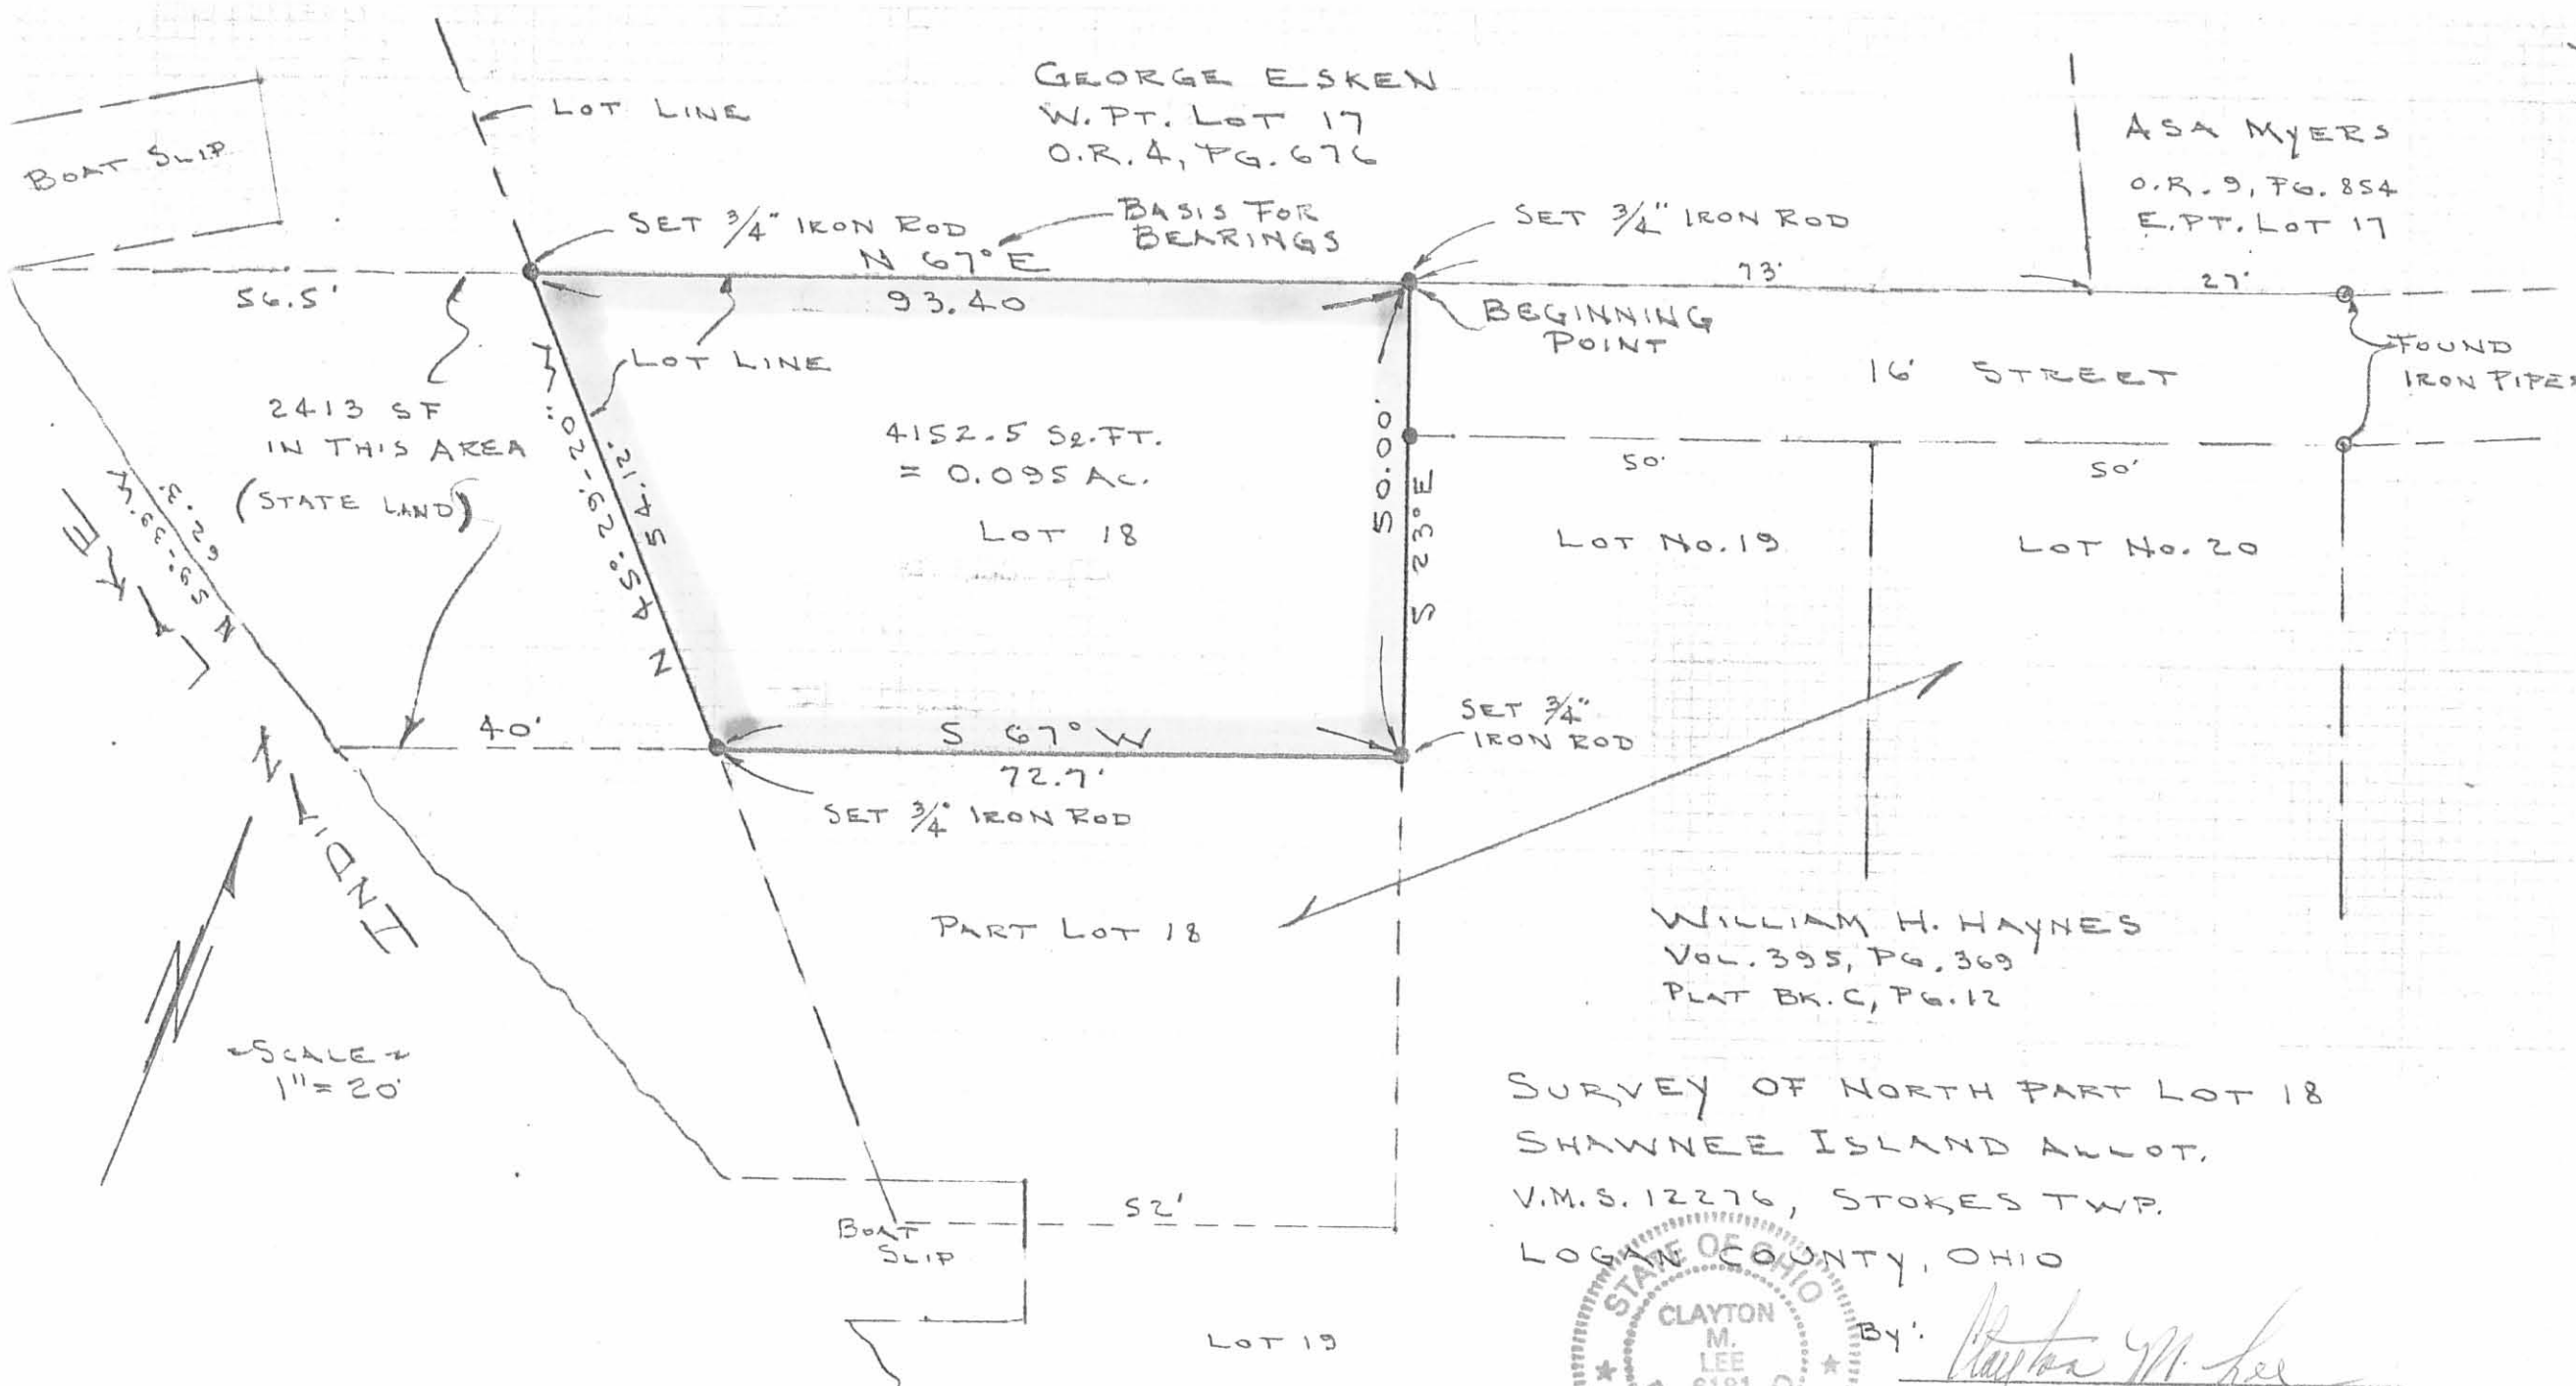 GEORGE ESKEN
W. PT. LOT 17
O.R. 4, PG. 676
LOT LINE
BOAT SLIP
ASA MYERS
O.R. 9, PG. 854
E. PT. LOT 17
SET 3/4" IRON ROD
BASIS FOR
BEARINGS
SET 3/4" IRON ROD
N 67° E
93.40
56.5'
73'
27'
BEGINNING
POINT
FOUND
IRON PIPES
16' STREET
LOT LINE
2413 SF
IN THIS AREA
(STATE LAND)
4152.5 SQ. FT.
= 0.095 AC.
LOT 18
N 45°-29'-20" W
54.12'
50.00'
S 23° E
50'
50'
LOT No. 19
LOT No. 20
62.3'
N 59°-39' W
INDIAN LAKE
40'
S 67° W
72.7'
SET 3/4"
IRON ROD
SET 3/4" IRON ROD
PART LOT 18
WILLIAM H. HAYNES
VOL. 395, PG. 369
PLAT BK. C, PG. 12
N
~SCALE~
1" = 20'
SURVEY OF NORTH PART LOT 18
SHAWNEE ISLAND ALLOT.
V.M.S. 12276, STOKES TWP.
LOGAN COUNTY, OHIO
52'
BOAT
SLIP
LOT 19
STATE OF OHIO
CLAYTON
M.
LEE
By: Clayton M. Lee